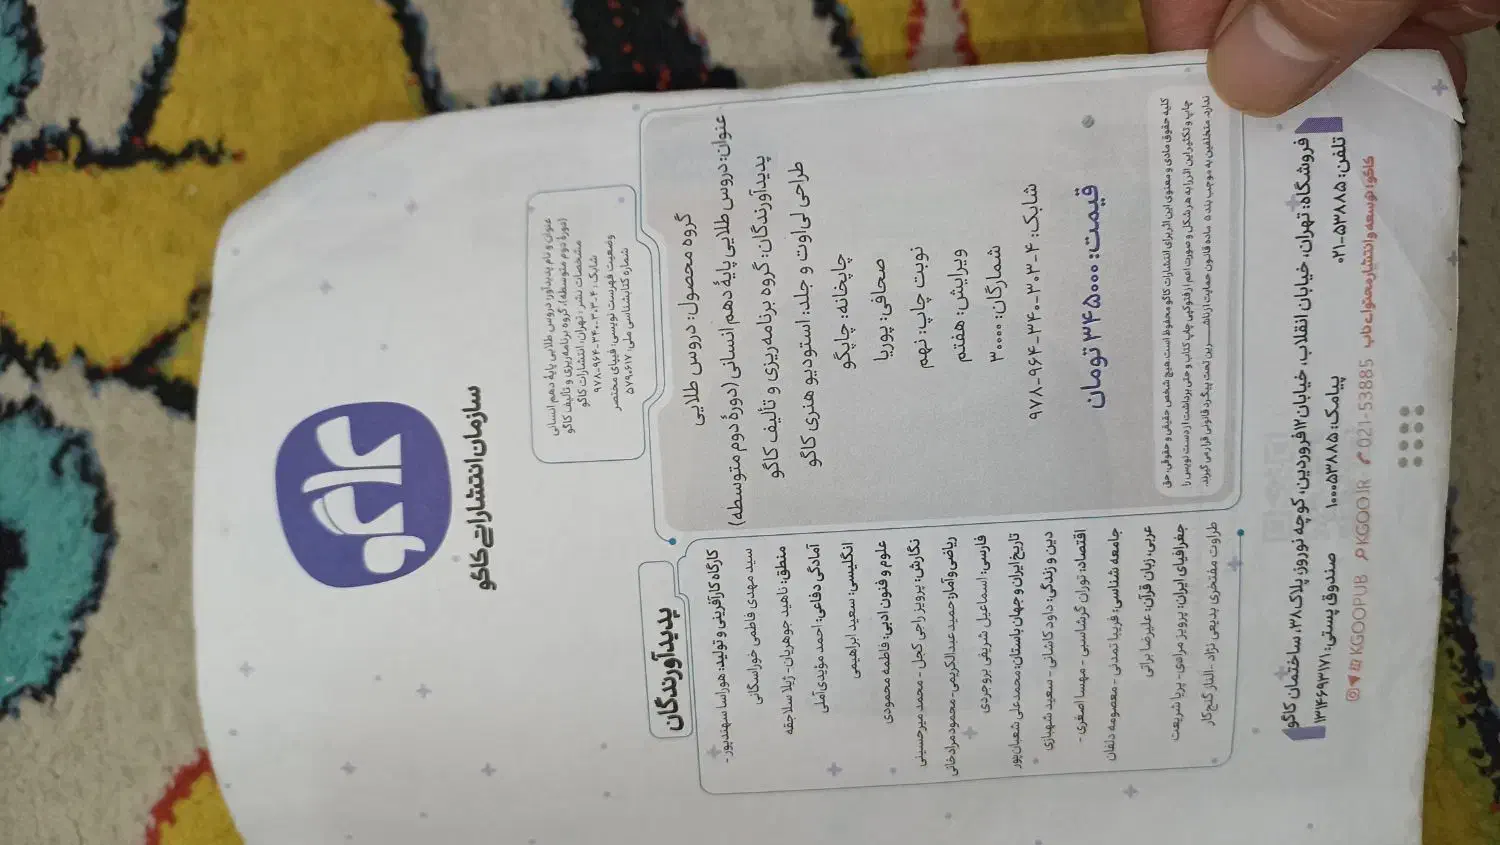 کاگو
سازمان انتشاراتی کاگو
عنوان و نام پدیدآور: دروس طلایی پایهٔ دهم انسانی
(دورهٔ دوم متوسطه)، گروه برنامه‌ریزی و تألیف کاگو
مشخصات نشر: تهران، انتشارات کاگو
شابک: ۴-۳۰۳-۳۴۰-۹۶۴-۹۷۸
وضعیت فهرست نویسی: فیپای مختصر
شماره کتابشناسی ملی: ۵۷۹۰۶۱۷
گروه محصول: دروس طلایی
عنوان: دروس طلایی پایهٔ دهم انسانی (دورهٔ دوم متوسطه)
پدیدآورندگان: گروه برنامه‌ریزی و تألیف کاگو
طراحی لی‌اوت و جلد: استودیو هنری کاگو
چاپخانه: چاپگو
صحافی: پوریا
نوبت چاپ: نهم
ویرایش: هفتم
شمارگان: ۳۰۰۰۰
شابک: ۴-۳۰۳-۳۴۰-۹۶۴-۹۷۸
قیمت: ۳۴۵۰۰۰ تومان
کلیه حقوق مادی و معنوی این اثر برای انتشارات کاگو محفوظ است. هیچ شخص حقیقی و حقوقی، حق
چاپ و تکثیر این اثر را به هر شکل و صورت اعم از فتوکپی، چاپ کتاب و حتی برداشت از دست نویس را
ندارد. متخلفین به موجب بند ۵ ماده قانون حمایت از ناشرین تحت پیگرد قانونی قرار می گیرند.
پدیدآورندگان
کارگاه کارآفرینی و تولید: هوراسا سهندپور -
سید مهدی فاطمی خوراسگانی
منطق: ناهید جوهریان - ژیلا سلاجقه
آمادگی دفاعی: احمد مؤیدی‌آملی
انگلیسی: سعید ابراهیمی
علوم و فنون ادبی: فاطمه محمودی
نگارش: پرویز راجی کجل - محمد میرحسینی
ریاضی و آمار: حمید عبدالکریمی - محمود مرادخانی
فارسی: اسماعیل شریفی بروجردی
تاریخ ایران و جهان باستان: محمدعلی شعبان‌پور
دین و زندگی: داود کاشانی - سعید شهبازی
اقتصاد: توران گرشاسبی - مهسا اصغری -
جامعه شناسی: فریبا تمدنی - معصومه دلفان
عربی، زبان قرآن: علیرضا براتی
جغرافیای ایران: پرویز مرادی - پریا شریعت
طراوت مفتخری بدیعی نژاد - الناز گنج‌کار
فروشگاه: تهران، خیابان انقلاب، خیابان ۱۲فروردین، کوچه نوروز، پلاک ۳۸، ساختمان کاگو
تلفن: ۵۳۸۸۵-۰۲۱ پیامک: ۱۰۰۰۵۳۸۸۵ صندوق پستی: ۱۳۱۴۶۹۳۱۷۱
KGOOPUB KGOO.IR 021-53885 کاگو؛ توسعه و انتشار محتوای ناب